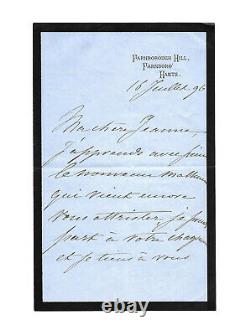 FARNBOROUGH HILL,
FARNBORO'
HANTS.
16 Juillet 96
Ma chère Jeanne,
j'apprends avec peine
le nouveau malheur
qui vient encore
vous attrister, je prends
part à votre chagrin
et je tiens à vous
ebay